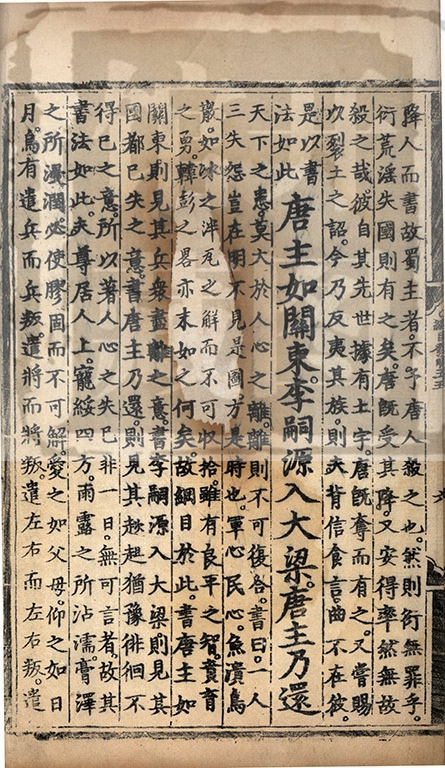 降人而書故蜀主者。不予唐人殺之也。然則衍無罪乎。
衍荒淫失國則有之矣。唐既受其降。又安得率然無故
殺之哉。彼自其先世據有土宇。唐既奪而有之。又嘗賜
以裂土之詔。今乃反夷其族。則夫背信食言。曲不在彼。
是以書
法如此
唐主如關東。李嗣源入大梁。唐主乃還
天下之患。莫大於人心之離。離則不可復合。書曰。一人
三失。怨豈在明。不見是圖。方是時也。軍心民心。魚潰鳥
散。如冰之泮。瓦之解而不可收拾。雖有良平之智。賁育
之勇。韓彭之畧。亦末如之何矣。故綱目於此。書唐主如
關東。則見其兵衆盡離之意。書李嗣源入大梁。則見其
國都已失之意。書唐主乃還。則見其趑趄猶豫。徘徊不
得已之意。所以著人心之失。已非一日。無可言者。故其
書法如此。夫尊居人上。寵綏四方。雨露之所沾濡。膏澤
之所浸潤。必使膠固而不可解。愛之如父母。仰之如日
月。烏有遣兵而兵叛。遣將而將叛。遣左右而左右叛。遣